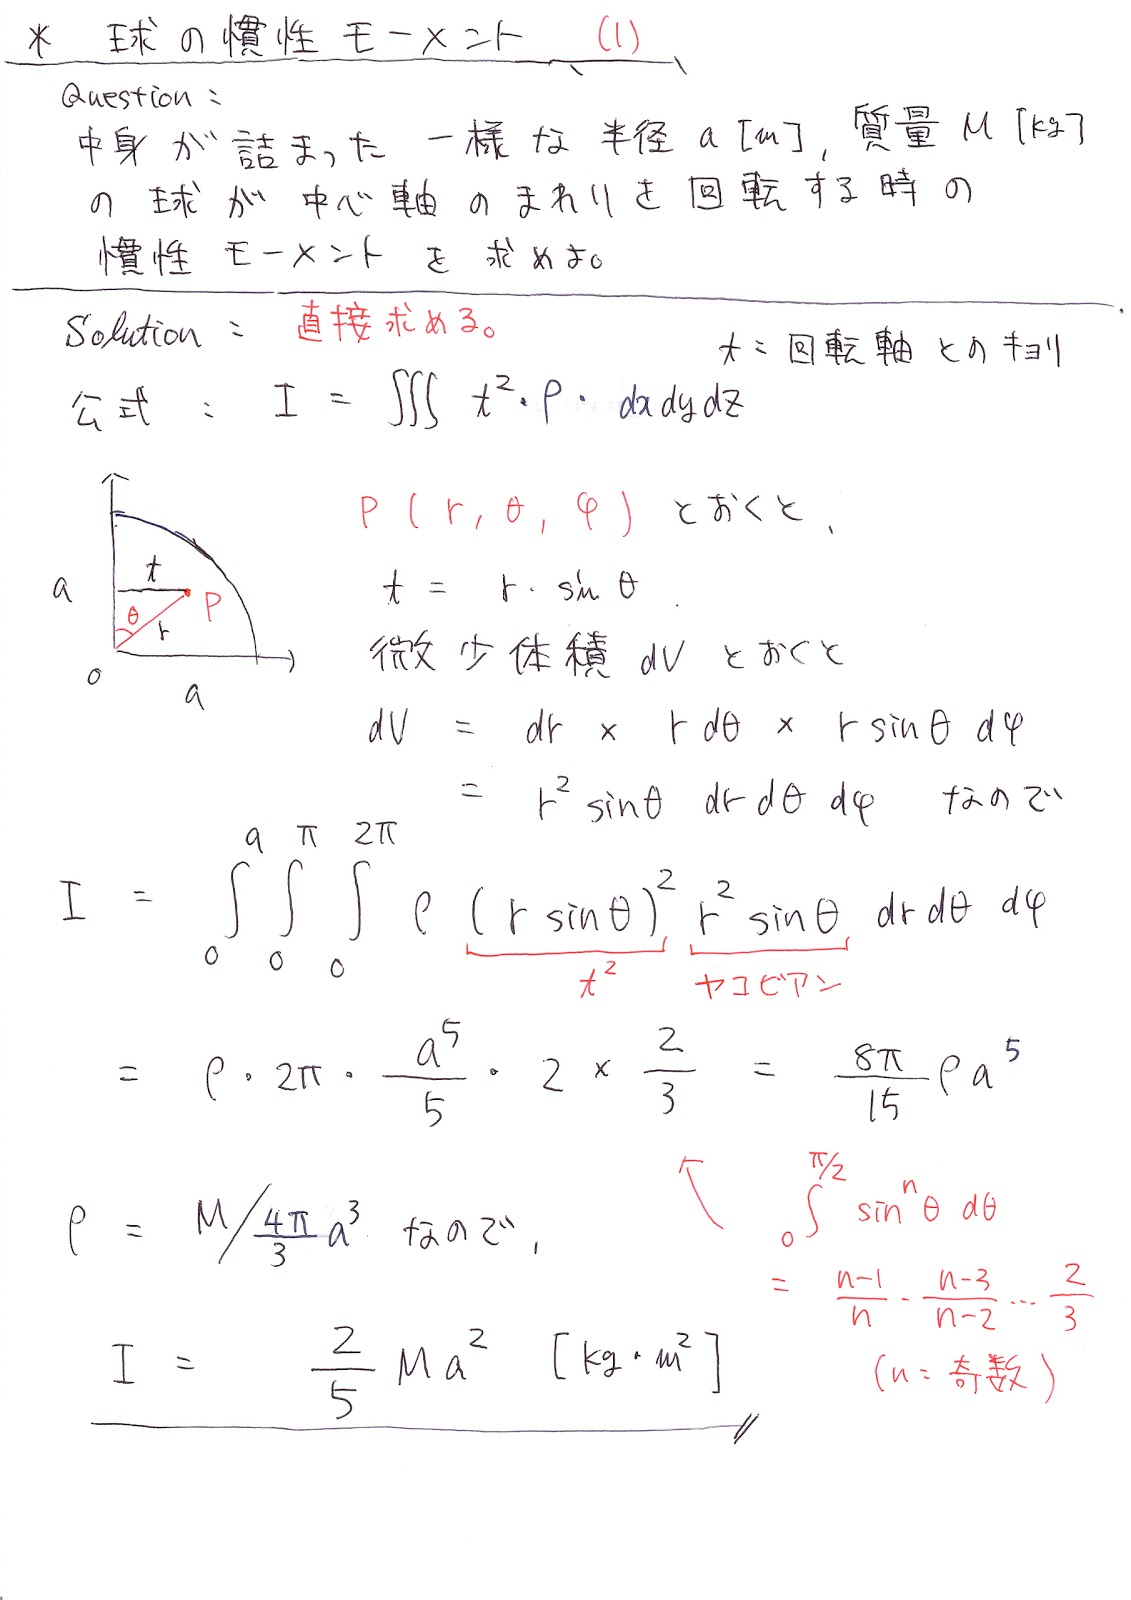 * 球の慣性モーメント (1)
Question:
中身が詰まった一様な半径 a [m], 質量 M [kg]
の球が中心軸のまわりを回転する時の
慣性モーメントを求めよ。
Solution: 直接求める。
t = 回転軸とのキョリ
公式: I = ∭ t²・ρ・dxdydz
a
t
θ
r
P
O
a
P (r, θ, φ) とおくと、
t = r・sin θ.
微少体積 dV とおくと
dV = dr × r dθ × r sinθ dφ
= r² sinθ dr dθ dφ なので
I = ∫₀^a ∫₀^π ∫₀^2π ρ (r sinθ)² r² sinθ dr dθ dφ
t² ヤコビアン
= ρ・2π・a⁵/5・2 × 2/3 = 8π/15 ρa⁵
ρ = M/(4π/3)a³ なので,
∫₀^π/2 sinⁿθ dθ
= n-1/n・n-3/n-2 … 2/3
(n = 奇数)
I = 2/5 Ma² [kg・m²]